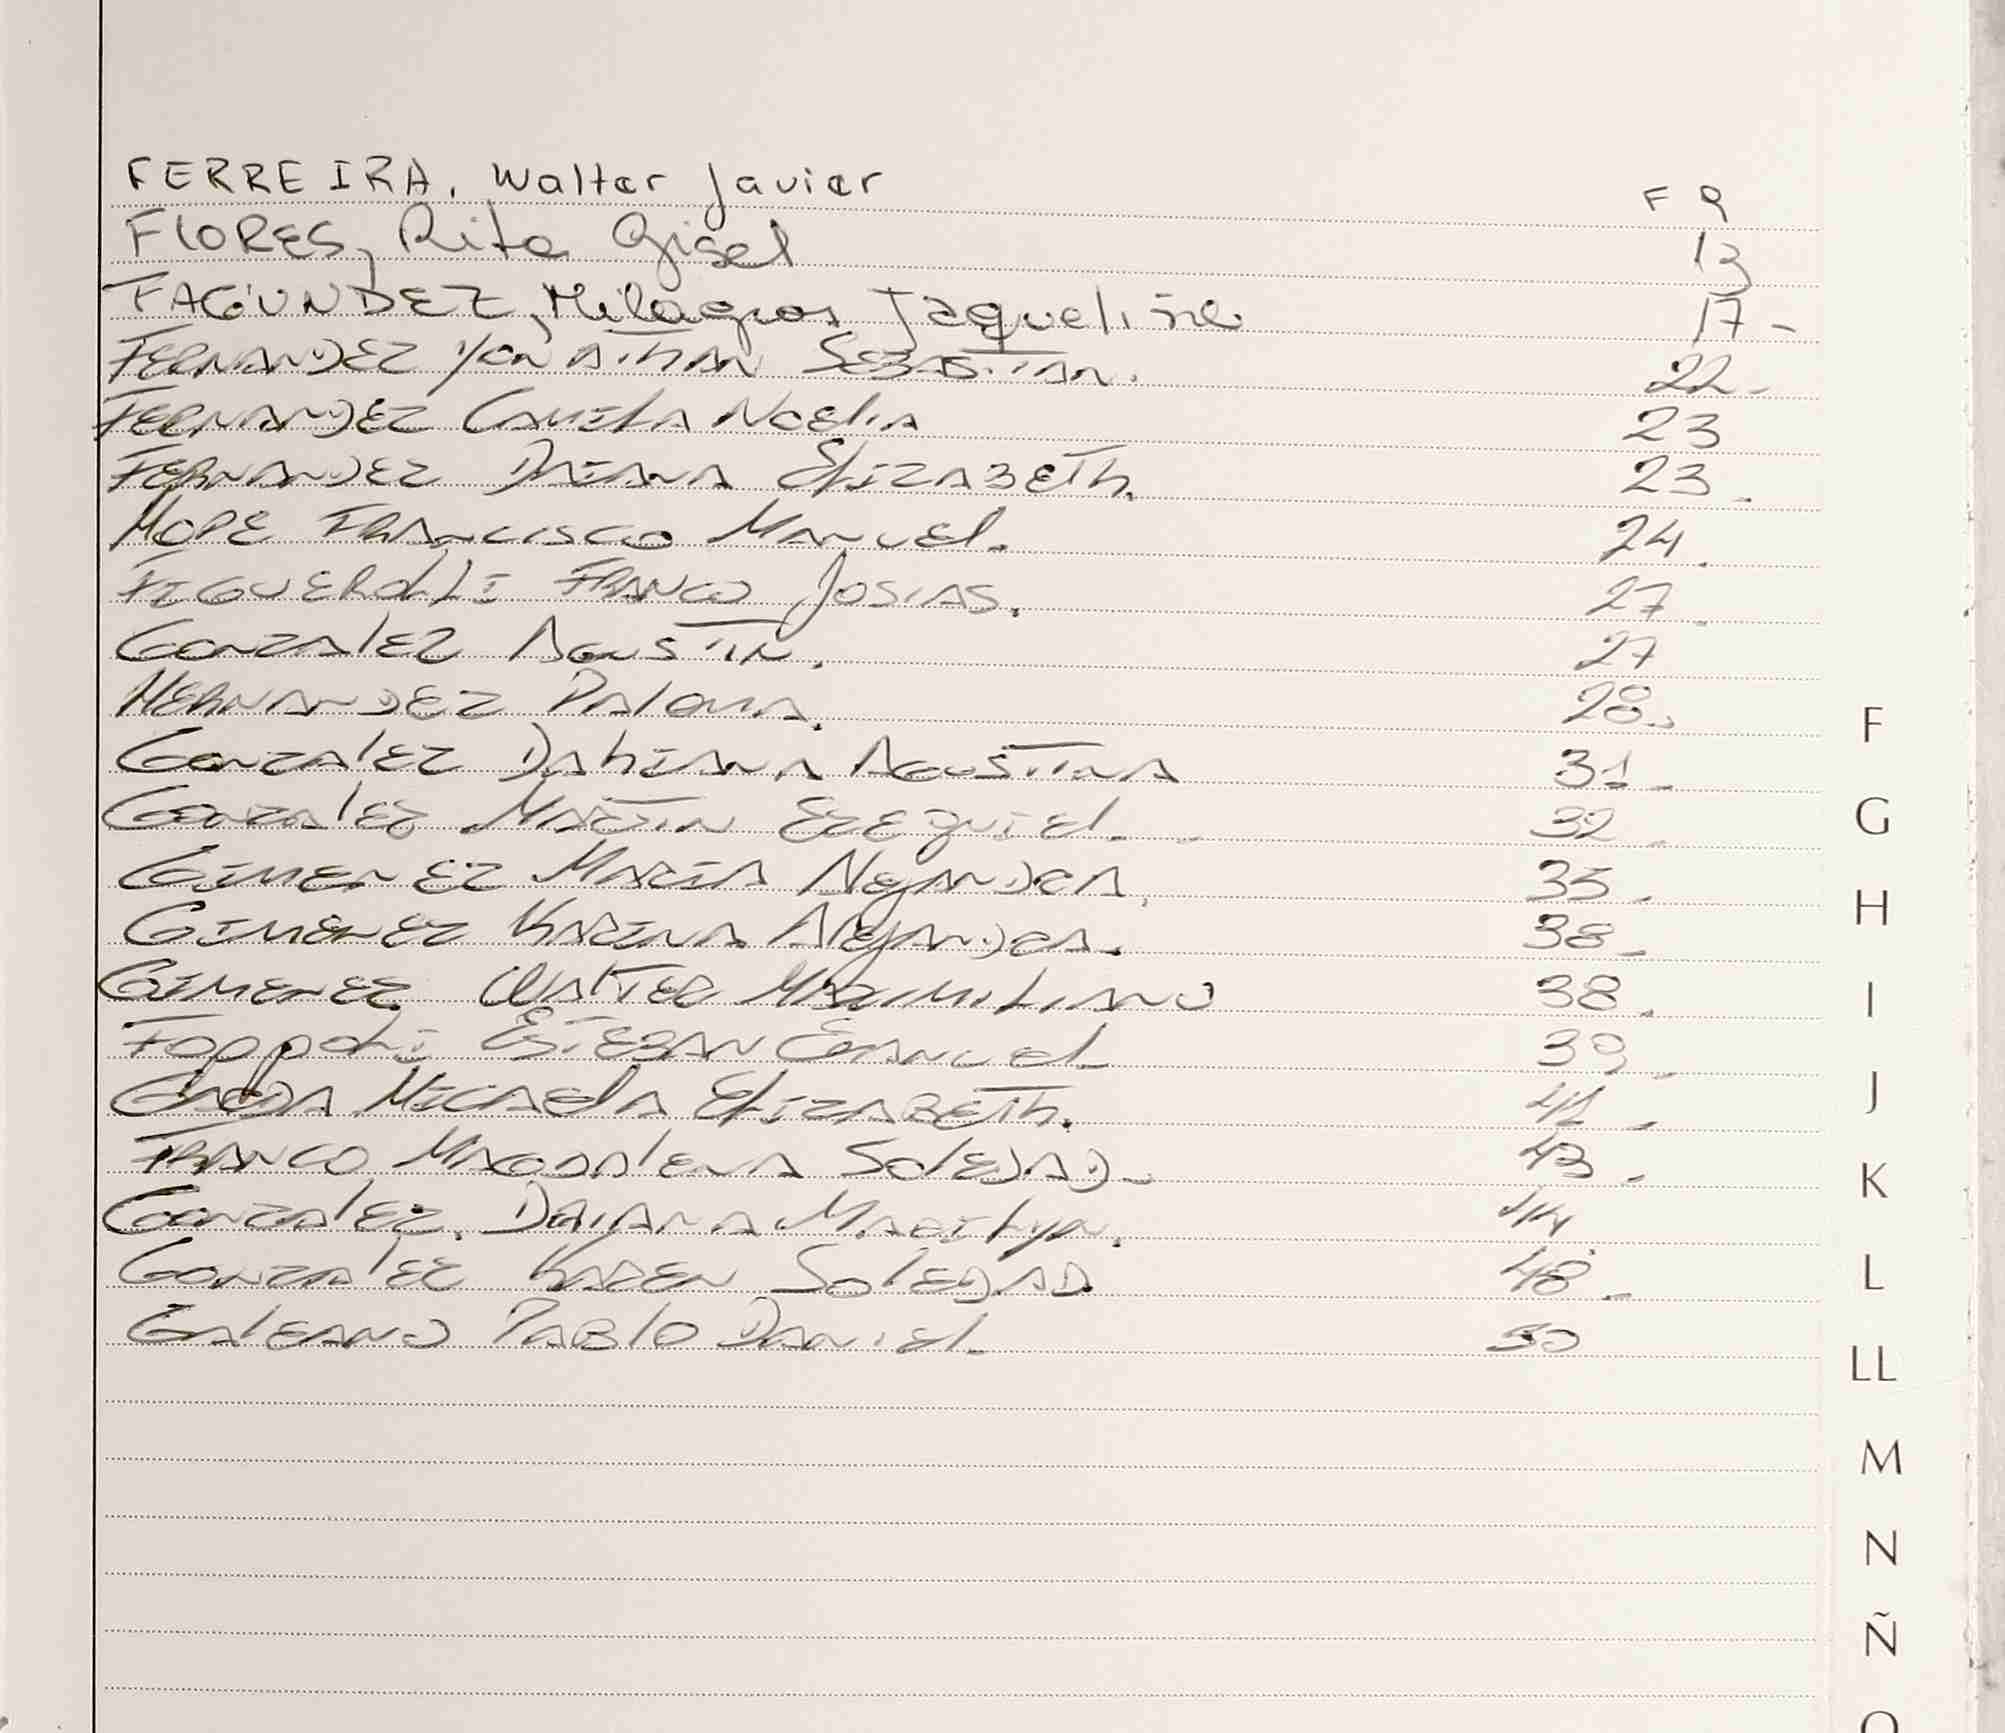 FERREIRA, Walter Javier F 9
FLORES, Rita Gisel 13
FAGUNDEZ, Milagros Jaqueline 17-
FERNANDEZ YONATHAN SEBASTIAN. 22-
FERNANDEZ CAMILA NOELIA 23
FERNANDEZ DAIANA ELIZABETH. 23.
FRANCISCO MANUEL. 24.
FIGUEROLLI FRANCO JOSIAS. 27.
GONZALEZ AGUSTIN. 27
HERNANDEZ PALOMA. 28.
GONZALEZ DAHIANA AGUSTINA 31-
GONZALEZ MARTIN EZEQUIEL. - 32-
GIMENEZ MARIA ALEJANDRA. 35-
GIMENEZ KARINA ALEJANDRA. 38-
GIMENEZ WALTER MAXIMILIANO 38.
FOPPOLI ESTEBAN EMANUEL 39-
MICAELA ELIZABETH. 41-
FRANCO MAGDALENA SOLEDAD- 43-
GONZALEZ. DAIANA MARILYN. 44.
GONZALEZ KAREN SOLEDAD 48-
GALEANO PABLO DANIEL. 50
F
G
H
I
J
K
L
LL
M
N
Ñ
O